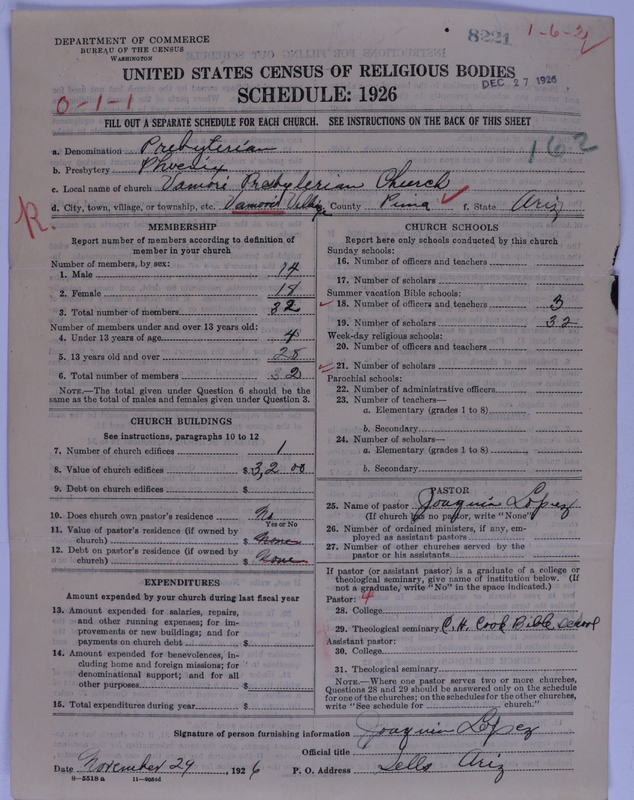 DEPARTMENT OF COMMERCE
BUREAU OF THE CENSUS
WASHINGTON
8221
1-6-2
UNITED STATES CENSUS OF RELIGIOUS BODIES
DEC 27 1926
SCHEDULE: 1926
0-1-1
FILL OUT A SEPARATE SCHEDULE FOR EACH CHURCH. SEE INSTRUCTIONS ON THE BACK OF THIS SHEET
162
a. Denomination Presbyterian
b. Presbytery Phoenix
c. Local name of church Vamori Presbyterian Church
d. City, town, village, or township, etc. Vamori Village County Pima f. State Ariz
R.
MEMBERSHIP
Report number of members according to definition of
member in your church
Number of members, by sex:
1. Male 14
2. Female 18
3. Total number of members 32
Number of members under and over 13 years old:
4. Under 13 years of age 4
5. 13 years old and over 28
6. Total number of members 32
NOTE.—The total given under Question 6 should be the
same as the total of males and females given under Question 3.
CHURCH BUILDINGS
See instructions, paragraphs 10 to 12
7. Number of church edifices 1
8. Value of church edifices $3,2 00
9. Debt on church edifices $
10. Does church own pastor's residence No
Yes or No
11. Value of pastor's residence (if owned by
church) $ None
12. Debt on pastor's residence (if owned by
church) $ None
EXPENDITURES
Amount expended by your church during last fiscal year
13. Amount expended for salaries, repairs,
and other running expenses; for im-
provements or new buildings; and for
payments on church debt $
14. Amount expended for benevolences, in-
cluding home and foreign missions; for
denominational support; and for all
other purposes $
15. Total expenditures during year $
CHURCH SCHOOLS
Report here only schools conducted by this church
Sunday schools:
16. Number of officers and teachers
17. Number of scholars
Summer vacation Bible schools:
18. Number of officers and teachers 3
19. Number of scholars 32
Week-day religious schools:
20. Number of officers and teachers
21. Number of scholars
Parochial schools:
22. Number of administrative officers
23. Number of teachers—
a. Elementary (grades 1 to 8)
b. Secondary
24. Number of scholars—
a. Elementary (grades 1 to 8)
b. Secondary
PASTOR
25. Name of pastor Joaquin Lopez
(If church has no pastor, write "None")
26. Number of ordained ministers, if any, em-
ployed as assistant pastors
27. Number of other churches served by the
pastor or his assistants
If pastor (or assistant pastor) is a graduate of a college or
theological seminary, give name of institution below. (If
not a graduate, write "No" in the space indicated.)
Pastor: 4
28. College
29. Theological seminary C. H. Cook Bible School
Assistant pastor:
30. College
31. Theological seminary
NOTE.—Where one pastor serves two or more churches,
Questions 28 and 29 should be answered only on the schedule
for one of the churches; on the schedules for the other churches,
write "See schedule for church."
Signature of person furnishing information Joaquin Lopez
Official title
Date November 29, 1926 P. O. Address Sells Ariz
8-5518 a